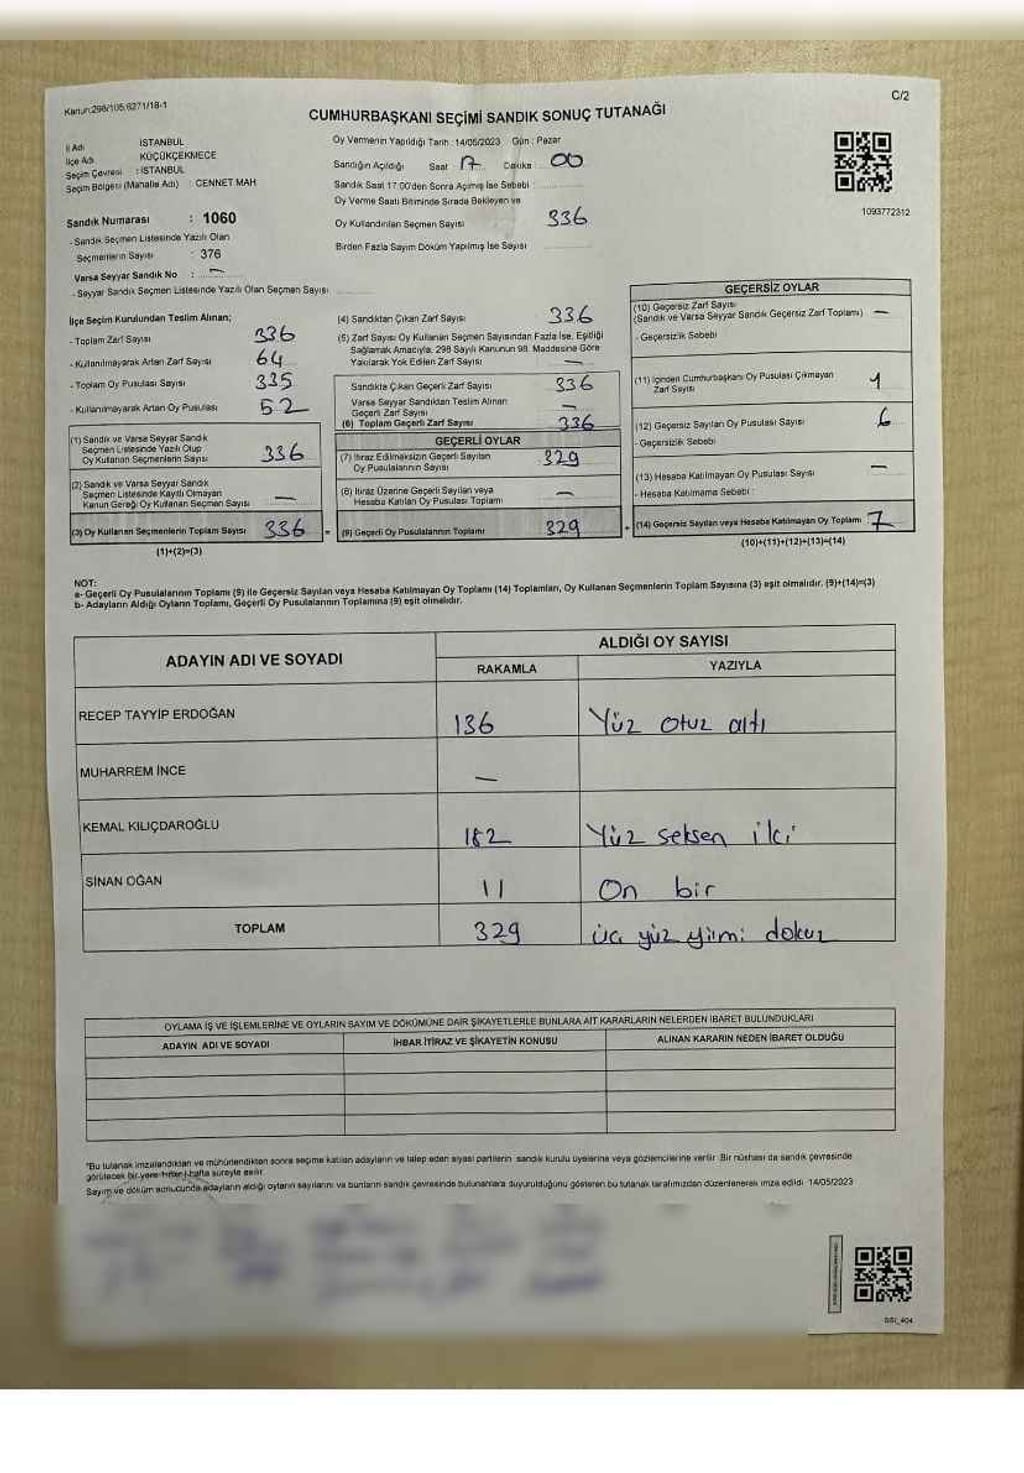 Kanun:298/105,6271/18-1
C/2
CUMHURBAŞKANI SEÇİMİ SANDIK SONUÇ TUTANAĞI
İl Adı İSTANBUL
İlçe Adı KÜÇÜKÇEKMECE
Seçim Çevresi : İSTANBUL
Seçim Bölgesi (Mahalle Adı) : CENNET MAH
Sandık Numarası : 1060
- Sandık Seçmen Listesinde Yazılı Olan
Seçmenlerin Sayısı : 376
Varsa Seyyar Sandık No : —
- Seyyar Sandık Seçmen Listesinde Yazılı Olan Seçmen Sayısı
Oy Vermenin Yapıldığı Tarih : 14/05/2023 Gün : Pazar
Sandığın Açıldığı Saat 17 Dakika 00
Sandık Saat 17:00'den Sonra Açılmış İse Sebebi :
Oy Verme Saati Bitiminde Sırada Bekleyen ve
Oy Kullandırılan Seçmen Sayısı 336
Birden Fazla Sayım Döküm Yapılmış İse Sayısı
1093772312
İlçe Seçim Kurulundan Teslim Alınan;
- Toplam Zarf Sayısı 336
- Kullanılmayarak Artan Zarf Sayısı 64
- Toplam Oy Pusulası Sayısı 335
- Kullanılmayarak Artan Oy Pusulası 52
(1) Sandık ve Varsa Seyyar Sandık
Seçmen Listesinde Yazılı Olup
Oy Kullanan Seçmenlerin Sayısı 336
(2) Sandık ve Varsa Seyyar Sandık
Seçmen Listesinde Kayıtlı Olmayan
Kanun Gereği Oy Kullanan Seçmen Sayısı —
(3) Oy Kullanan Seçmenlerin Toplam Sayısı 336 =
(1)+(2)=(3)
(4) Sandıktan Çıkan Zarf Sayısı 336
(5) Zarf Sayısı Oy Kullanan Seçmen Sayısından Fazla İse, Eşitliği
Sağlamak Amacıyla, 298 Sayılı Kanunun 98. Maddesine Göre
Yakılarak Yok Edilen Zarf Sayısı —
Sandıkta Çıkan Geçerli Zarf Sayısı 336
Varsa Seyyar Sandıktan Teslim Alınan
Geçerli Zarf Sayısı —
(6) Toplam Geçerli Zarf Sayısı 336
GEÇERLİ OYLAR
(7) İtiraz Edilmeksizin Geçerli Sayılan
Oy Pusulalarının Sayısı 329
(8) İtiraz Üzerine Geçerli Sayılan veya
Hesaba Katılan Oy Pusulası Toplamı —
(9) Geçerli Oy Pusulalarının Toplamı 329 +
GEÇERSİZ OYLAR
(10) Geçersiz Zarf Sayısı
(Sandık ve Varsa Seyyar Sandık Geçersiz Zarf Toplamı) —
- Geçersizlik Sebebi
(11) İçinden Cumhurbaşkanı Oy Pusulası Çıkmayan
Zarf Sayısı 1
(12) Geçersiz Sayılan Oy Pusulası Sayısı 6
- Geçersizlik Sebebi
(13) Hesaba Katılmayan Oy Pusulası Sayısı —
- Hesaba Katılmama Sebebi :
(14) Geçersiz Sayılan veya Hesaba Katılmayan Oy Toplamı 7
(10)+(11)+(12)+(13)=(14)
NOT:
a- Geçerli Oy Pusulalarının Toplamı (9) ile Geçersiz Sayılan veya Hesaba Katılmayan Oy Toplamı (14) Toplamları, Oy Kullanan Seçmenlerin Toplam Sayısına (3) eşit olmalıdır. (9)+(14)=(3)
b- Adayların Aldığı Oyların Toplamı, Geçerli Oy Pusulalarının Toplamına (9) eşit olmalıdır.
ADAYIN ADI VE SOYADI ALDIĞI OY SAYISI
RAKAMLA YAZIYLA
RECEP TAYYİP ERDOĞAN 136 Yüz otuz altı
MUHARREM İNCE —
KEMAL KILIÇDAROĞLU 182 Yüz seksen iki
SİNAN OĞAN 11 On bir
TOPLAM 329 üç yüz yiimi dokuz
OYLAMA İŞ VE İŞLEMLERİNE VE OYLARIN SAYIM VE DÖKÜMÜNE DAİR ŞİKAYETLERLE BUNLARA AİT KARARLARIN NELERDEN İBARET BULUNDUKLARI
ADAYIN ADI VE SOYADI İHBAR İTİRAZ VE ŞİKAYETİN KONUSU ALINAN KARARIN NEDEN İBARET OLDUĞU
"Bu tutanak imzalandıktan ve mühürlendikten sonra seçime katılan adayların ve talep eden siyasi partilerin sandık kurulu üyelerine veya gözlemcilerine verilir. Bir nüshası da sandık çevresinde
görülecek bir yere hemen 1 hafta süreyle asılır.
Sayım ve döküm sonucunda adayların aldığı oyların sayılarını ve bunların sandık çevresinde bulunanlara duyurulduğunu gösteren bu tutanak tarafımızdan düzenlenerek imza edildi. 14/05/2023